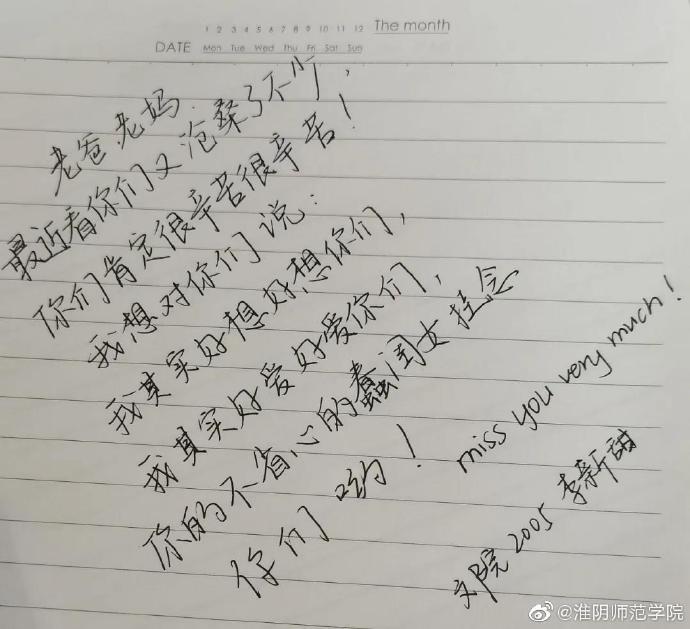 1 2 3 4 5 6 7 8 9 10 11 12 The month
DATE Mon Tue Wed Thu Fri Sat Sun
老爸老妈：
最近看你们又沧桑了不少，
你们肯定很辛苦很辛苦！
我想对你们说：
我其实好想好想你们，
我其实好爱好爱你们，
你的不省心的蠢闺女挂念
你们哟！ miss you very much！
文院2005 李新甜
@淮阴师范学院